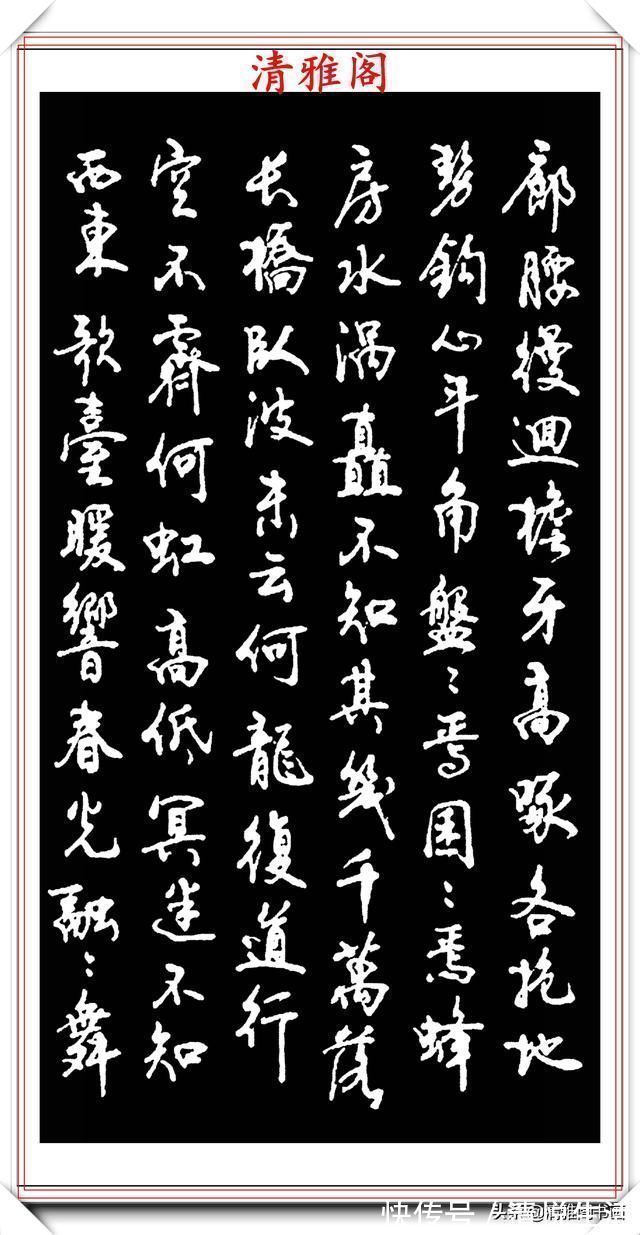 清雅阁
廊腰縵迴檐牙高啄各抱地
勢鈎心斗角盤〻焉囷〻焉蜂
房水渦矗不知其幾千萬落
長橋臥波未云何龍復道行
空不霽何虹高低冥迷不知
西東歌臺暖響春光融〻舞
快传号